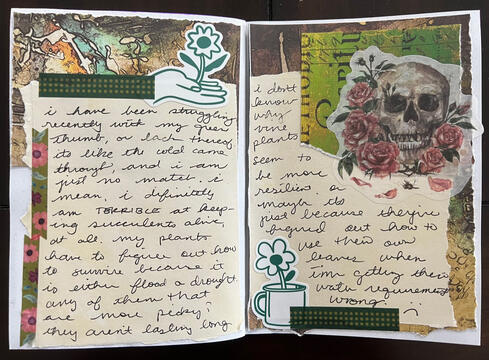 i have been struggling
recently with my green
thumb, or lack thereof
its like the cold came
through, and i am
just no match. i
mean, i definitely
am TERRIBLE at keep-
ing succulents alive,
at all. my plants
have to figure out how
to survive because it
is either flood or drought.
any of them that
are more picky;
they aren't lasting long
i don't
know
why
vine
plants
seem to
be more
resilien. or
maybe its
just because they've
figured out how to
use their own
leaves when
i'm getting their
water requirements
wrong. :)